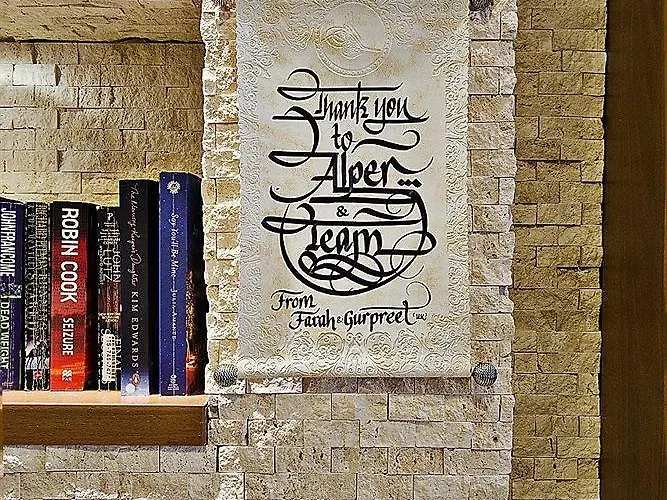 Thank you
to
Alper...
&
team
From
Farah & Gurpreet UK
JOHN FRANCOME
DEAD WEIGHT
ROBIN COOK
SEIZURE
PAN
JOHN
LUTZ
FINAL
The Memory Keeper's Daughter KIM EDWARDS
Say You'll Be Mine JULIA AMANTE